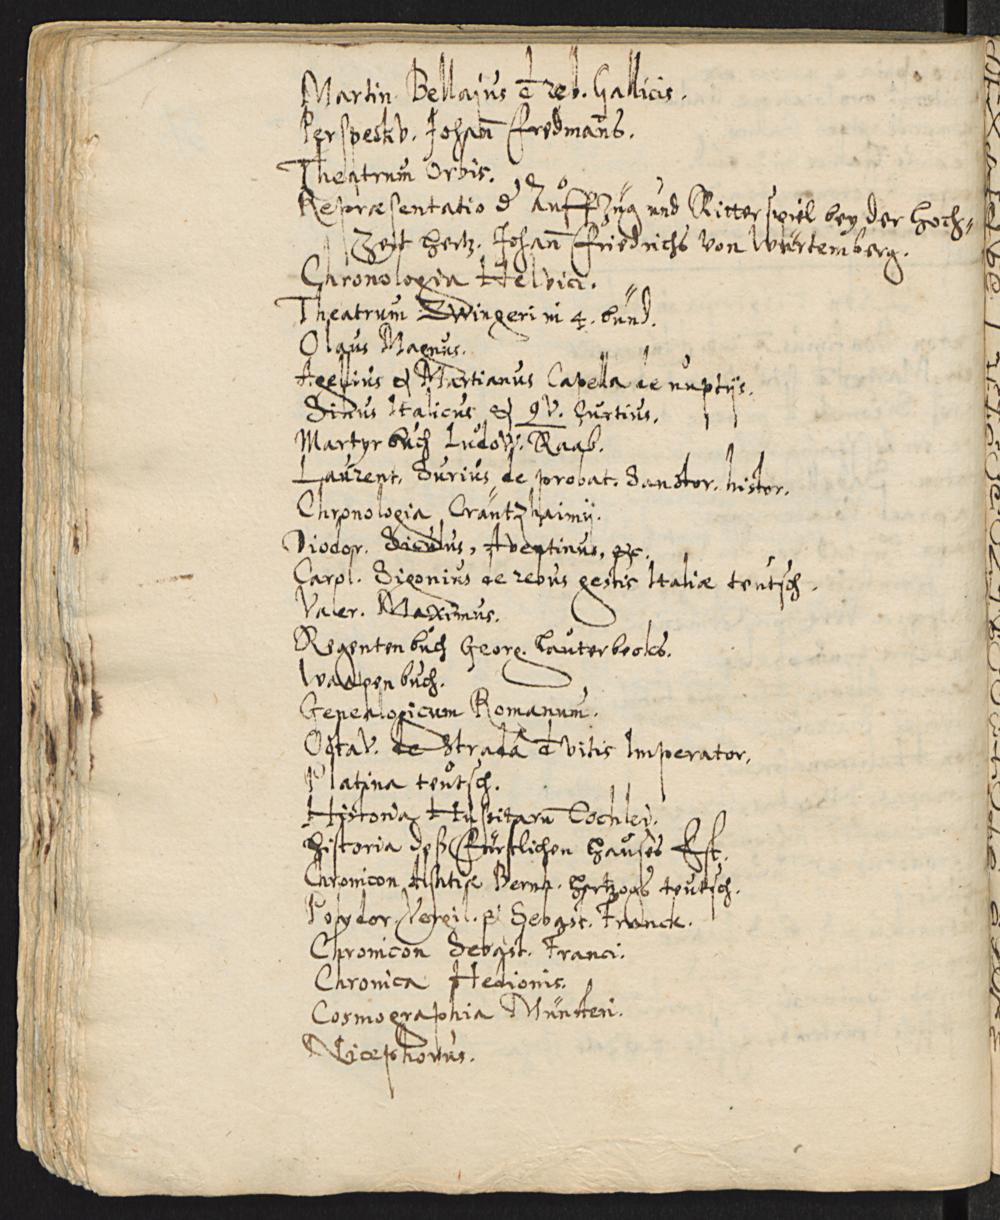 Martin. Bellajus d reb. Gallicis.
Perspectiv. Johañ Fredmañs.
Theatrum Orbis.
Repræsentatio d' Auffzüg und Ritterspiel bey der Hoch=
zeit Hertz. Johañ Friedrichs von Würtemberg.
Chronologia Helvici.
Theatrum Zwingeri in 4. bünd.
Olaus Magnus.
Agellius & Martianus Capella de nuptijs.
Silius Italicus & QV. Curtius.
Martyrbuch Ludov. Raab.
Laurent. Surius de probat. Sanctor. histor.
Chronologia Cräutzhaimij.
Diodor. Siculus, Aventinus, &c.
Carol. Sigonius de rebus gestis Italiæ teutsch.
Valer. Maximus.
Regentenbuch Georg. Lauterbecks.
Wappenbuch.
Genealogicum Romanum.
Octav. de Strada d vitis Imperator.
Platina teutsch.
Historia Hussitarū Cochlei.
Historia deß Fürstlichen Hauses Est.
Chronicon Alsatiæ Bernh. Hertzogs teutsch.
Polydor Vergil. & Sebast. Franck.
Chronicon Sebast. Franci.
Chronica Hedionis.
Cosmographia Münsteri.
Nicephorus.